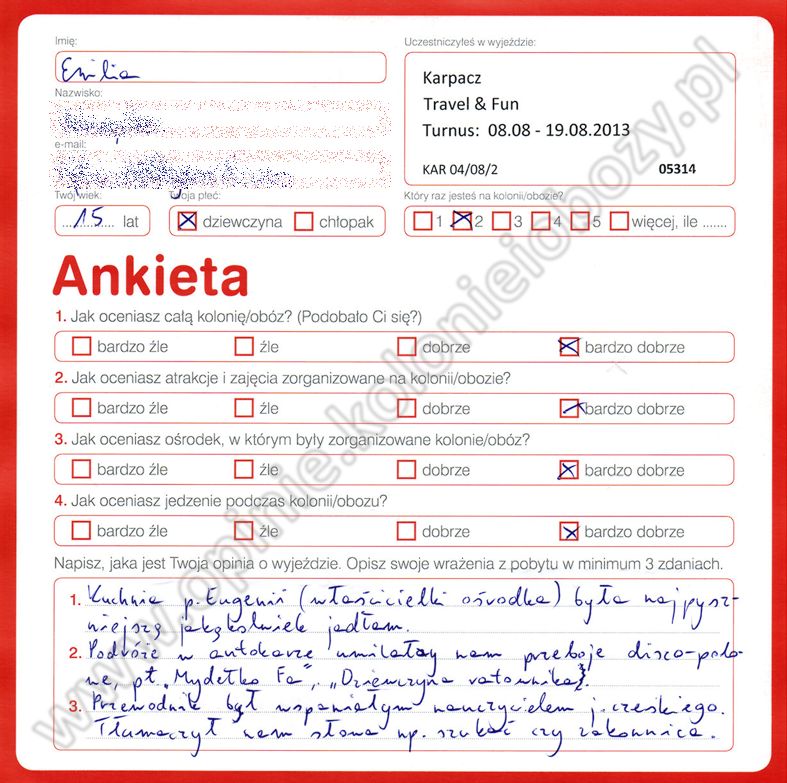 Imię:
Emilia
Uczestniczyłeś w wyjeździe:
Karpacz
Travel & Fun
Turnus: 08.08 - 19.08.2013
KAR 04/08/2 05314
Nazwisko:
e-mail:
Twój wiek:
15 lat
Twoja płeć:
dziewczyna chłopak
Który raz jesteś na kolonii/obozie?
1 2 3 4 5 więcej, ile .......
Ankieta
1. Jak oceniasz całą kolonię/obóz? (Podobało Ci się?)
bardzo źle źle dobrze bardzo dobrze
2. Jak oceniasz atrakcje i zajęcia zorganizowane na kolonii/obozie?
bardzo źle źle dobrze bardzo dobrze
3. Jak oceniasz ośrodek, w którym były zorganizowane kolonie/obóz?
bardzo źle źle dobrze bardzo dobrze
4. Jak oceniasz jedzenie podczas kolonii/obozu?
bardzo źle źle dobrze bardzo dobrze
Napisz, jaka jest Twoja opinia o wyjeździe. Opisz swoje wrażenia z pobytu w minimum 3 zdaniach.
1. Kuchnia p. Eugenii (właścicielki ośrodka) była najpysz-
niejszą jakąkolwiek jadłam.
2. Podróże w autokarze umilały nam przeboje disco-polo-
we, pt. „Mydełko Fa", „Dziewczyna ratownika".
3. Przewodnik był wspaniałym nauczycielem j. czeskiego.
Tłumaczył nam słowa np. szukać czy zakonnica.
www.opinie.kolonieiobozy.pl